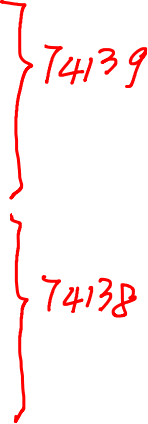 74139
74138